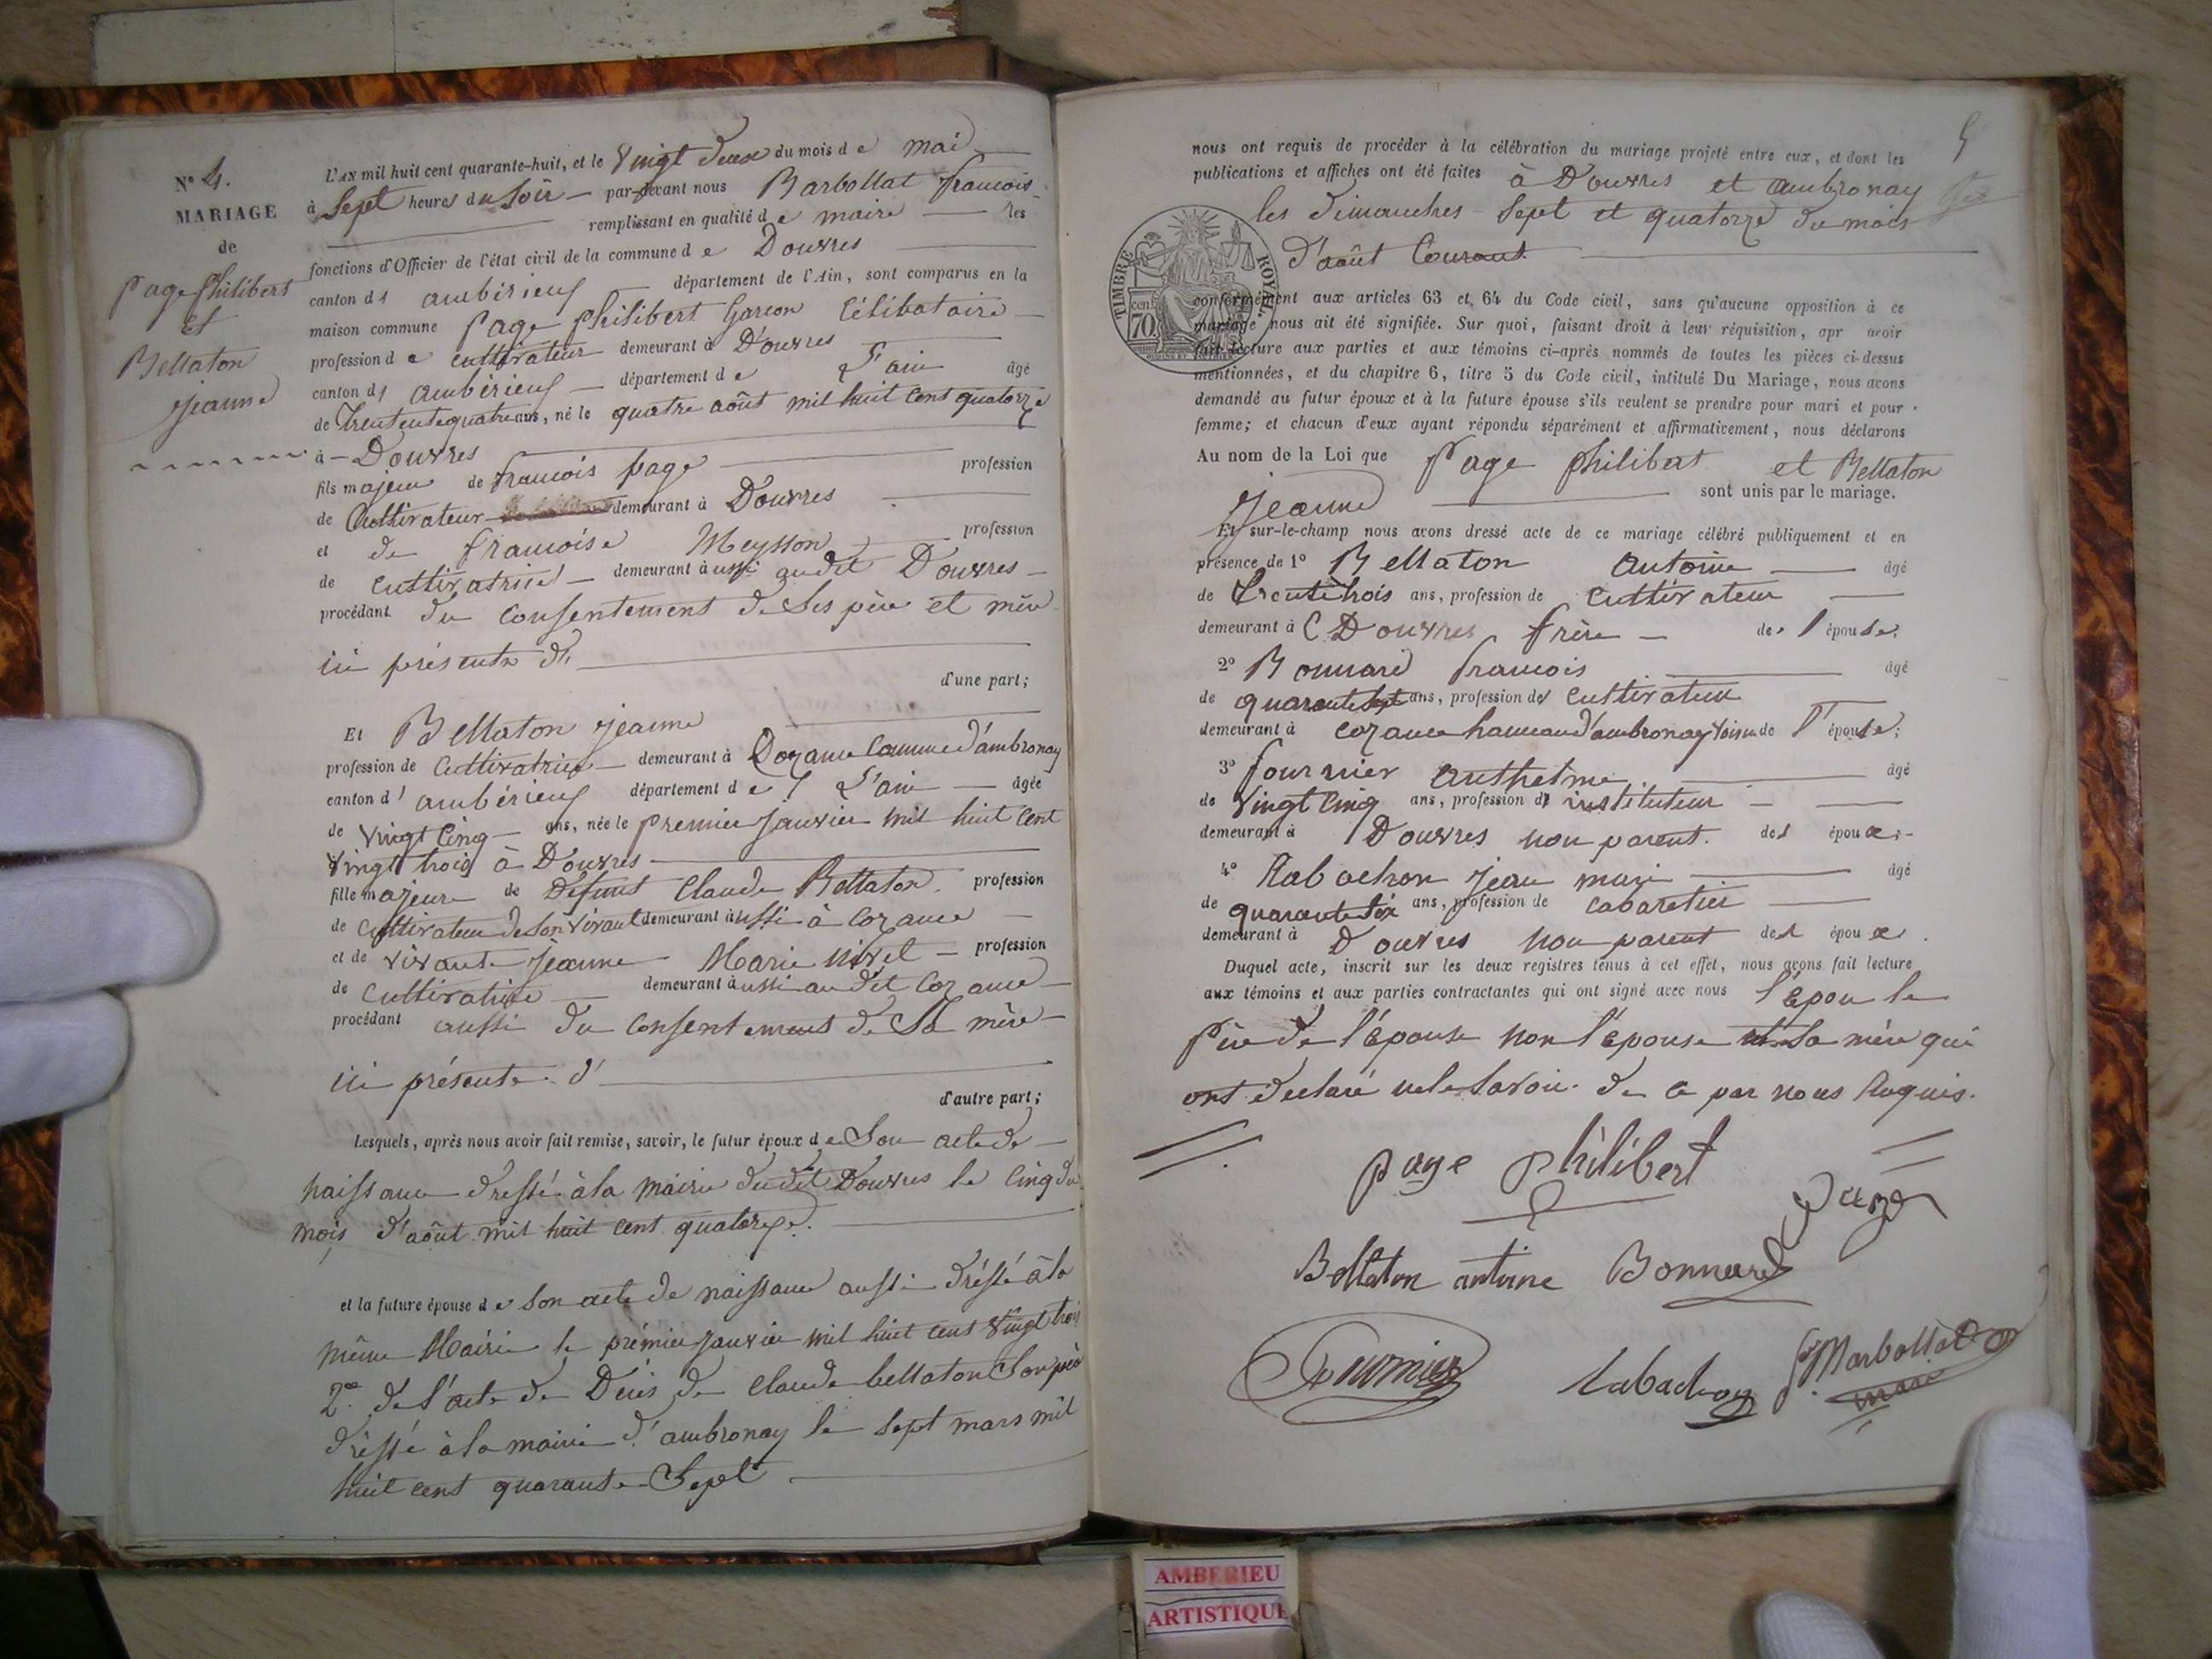 N° 4.
MARIAGE
de
Page Philibert
Et
Bellaton
Jeanne
L'AN mil huit cent quarante-huit, et le Vingt deux du mois de mai
à Sept heures du Soir par-devant nous Barbollat françois
remplissant en qualité de maire les
fonctions d'Officier de l'état civil de la commune de Douvres
canton d' ambérieux département de l'Ain, sont comparus en la
maison commune Page philibert Garcon Célibataire
profession de cultivateur demeurant à Douvres
canton d' ambérieux département de L'ain âgé
de Trententequatre ans, né le quatre août mil huit Cent quatorze
à Douvres
fils majeur de françois page profession
de Cultivateur demeurant à Douvres
et de françoise Meysson profession
de cultivatrice demeurant aussi audit Douvres
procédant du Consentement de Ses père et mère
ici présents d'
d'une part;
Et Bellaton Jeanne
profession de Cultivatrice demeurant à Cozance Commune d'ambronay
canton d' ambérieux département de L'ain âgée
de Vingt Cinq ans, née le premier Janvier mil huit Cent
Vingt trois à Douvres
fille majeure de Défunt Claude Bellaton profession
de cultivateur de Son Vivant demeurant aussi à Cozance
et de vivante Jeanne Marie Nivel profession
de Cultivatrice demeurant aussi audit Cozance
procédant aussi du Consentement de Sa mère
ici présente d'
d'autre part;
Lesquels, après nous avoir fait remise, savoir, le futur époux de Son acte de
naissance dressé à la Mairie dudit Douvres le Cinq du
mois d'août mil huit Cent quatorze.
et la future épouse de Son acte de naissance aussi dréssé à la
même Mairie le prémier Janvier mil huit Cent Vingt trois
2° de l'acte de Décès de Claude bellaton Son père
dréssé à la mairie d'ambronay le Sept mars mil
huit cent quarante Sept
5
nous ont requis de procéder à la célébration du mariage projeté entre eux, et dont les
publications et affiches ont été faites à Douvres et ambronay
les dimanches Sept et quatorze du mois
d'août Courant
TIMBRE ROYAL.
cen 70
conformément aux articles 63 et 64 du Code civil, sans qu'aucune opposition à ce
mariage nous ait été signifiée. Sur quoi, faisant droit à leur réquisition, apr avoir
fait lecture aux parties et aux témoins ci-après nommés de toutes les pièces ci-dessus
mentionnées, et du chapitre 6, titre 5 du Code civil, intitulé Du Mariage, nous avons
demandé au futur époux et à la future épouse s'ils veulent se prendre pour mari et pour
femme; et chacun d'eux ayant répondu séparément et affirmativement, nous déclarons
Au nom de la Loi que Page philibert et Bellaton
Jeanne sont unis par le mariage.
Et sur-le-champ nous avons dressé acte de ce mariage célébré publiquement et en
présence de 1° Bellaton Antoine âgé
de Trente trois ans, profession de Cultivateur
demeurant à Douvres frère de l'épouse;
2° Bonnard françois âgé
de quarante Sept ans, profession de Cultivateur
demeurant à cozance hameau d'ambronay voisin de l'épouse;
3° fournier anthelme âgé
de Vingt Cinq ans, profession d' instituteur
demeurant à Douvres non parent des époux;
4° Rabachon Jean marie âgé
de quarante Six ans, profession de Cabaretier
demeurant à Douvres non parent des époux.
Duquel acte, inscrit sur les deux registres tenus à cet effet, nous avons fait lecture
aux témoins et aux parties contractantes qui ont signé avec nous l'époux le
Père de l'Epouse non l'épouse et Sa mère qui
ont déclaré ne le Savoir de ce par nous Requis.
page philibert
Page
Bellaton antoine Bonnard
Fournier
Rabachon
fs Barbollat
maire
AMBERIEU
ARTISTIQUE